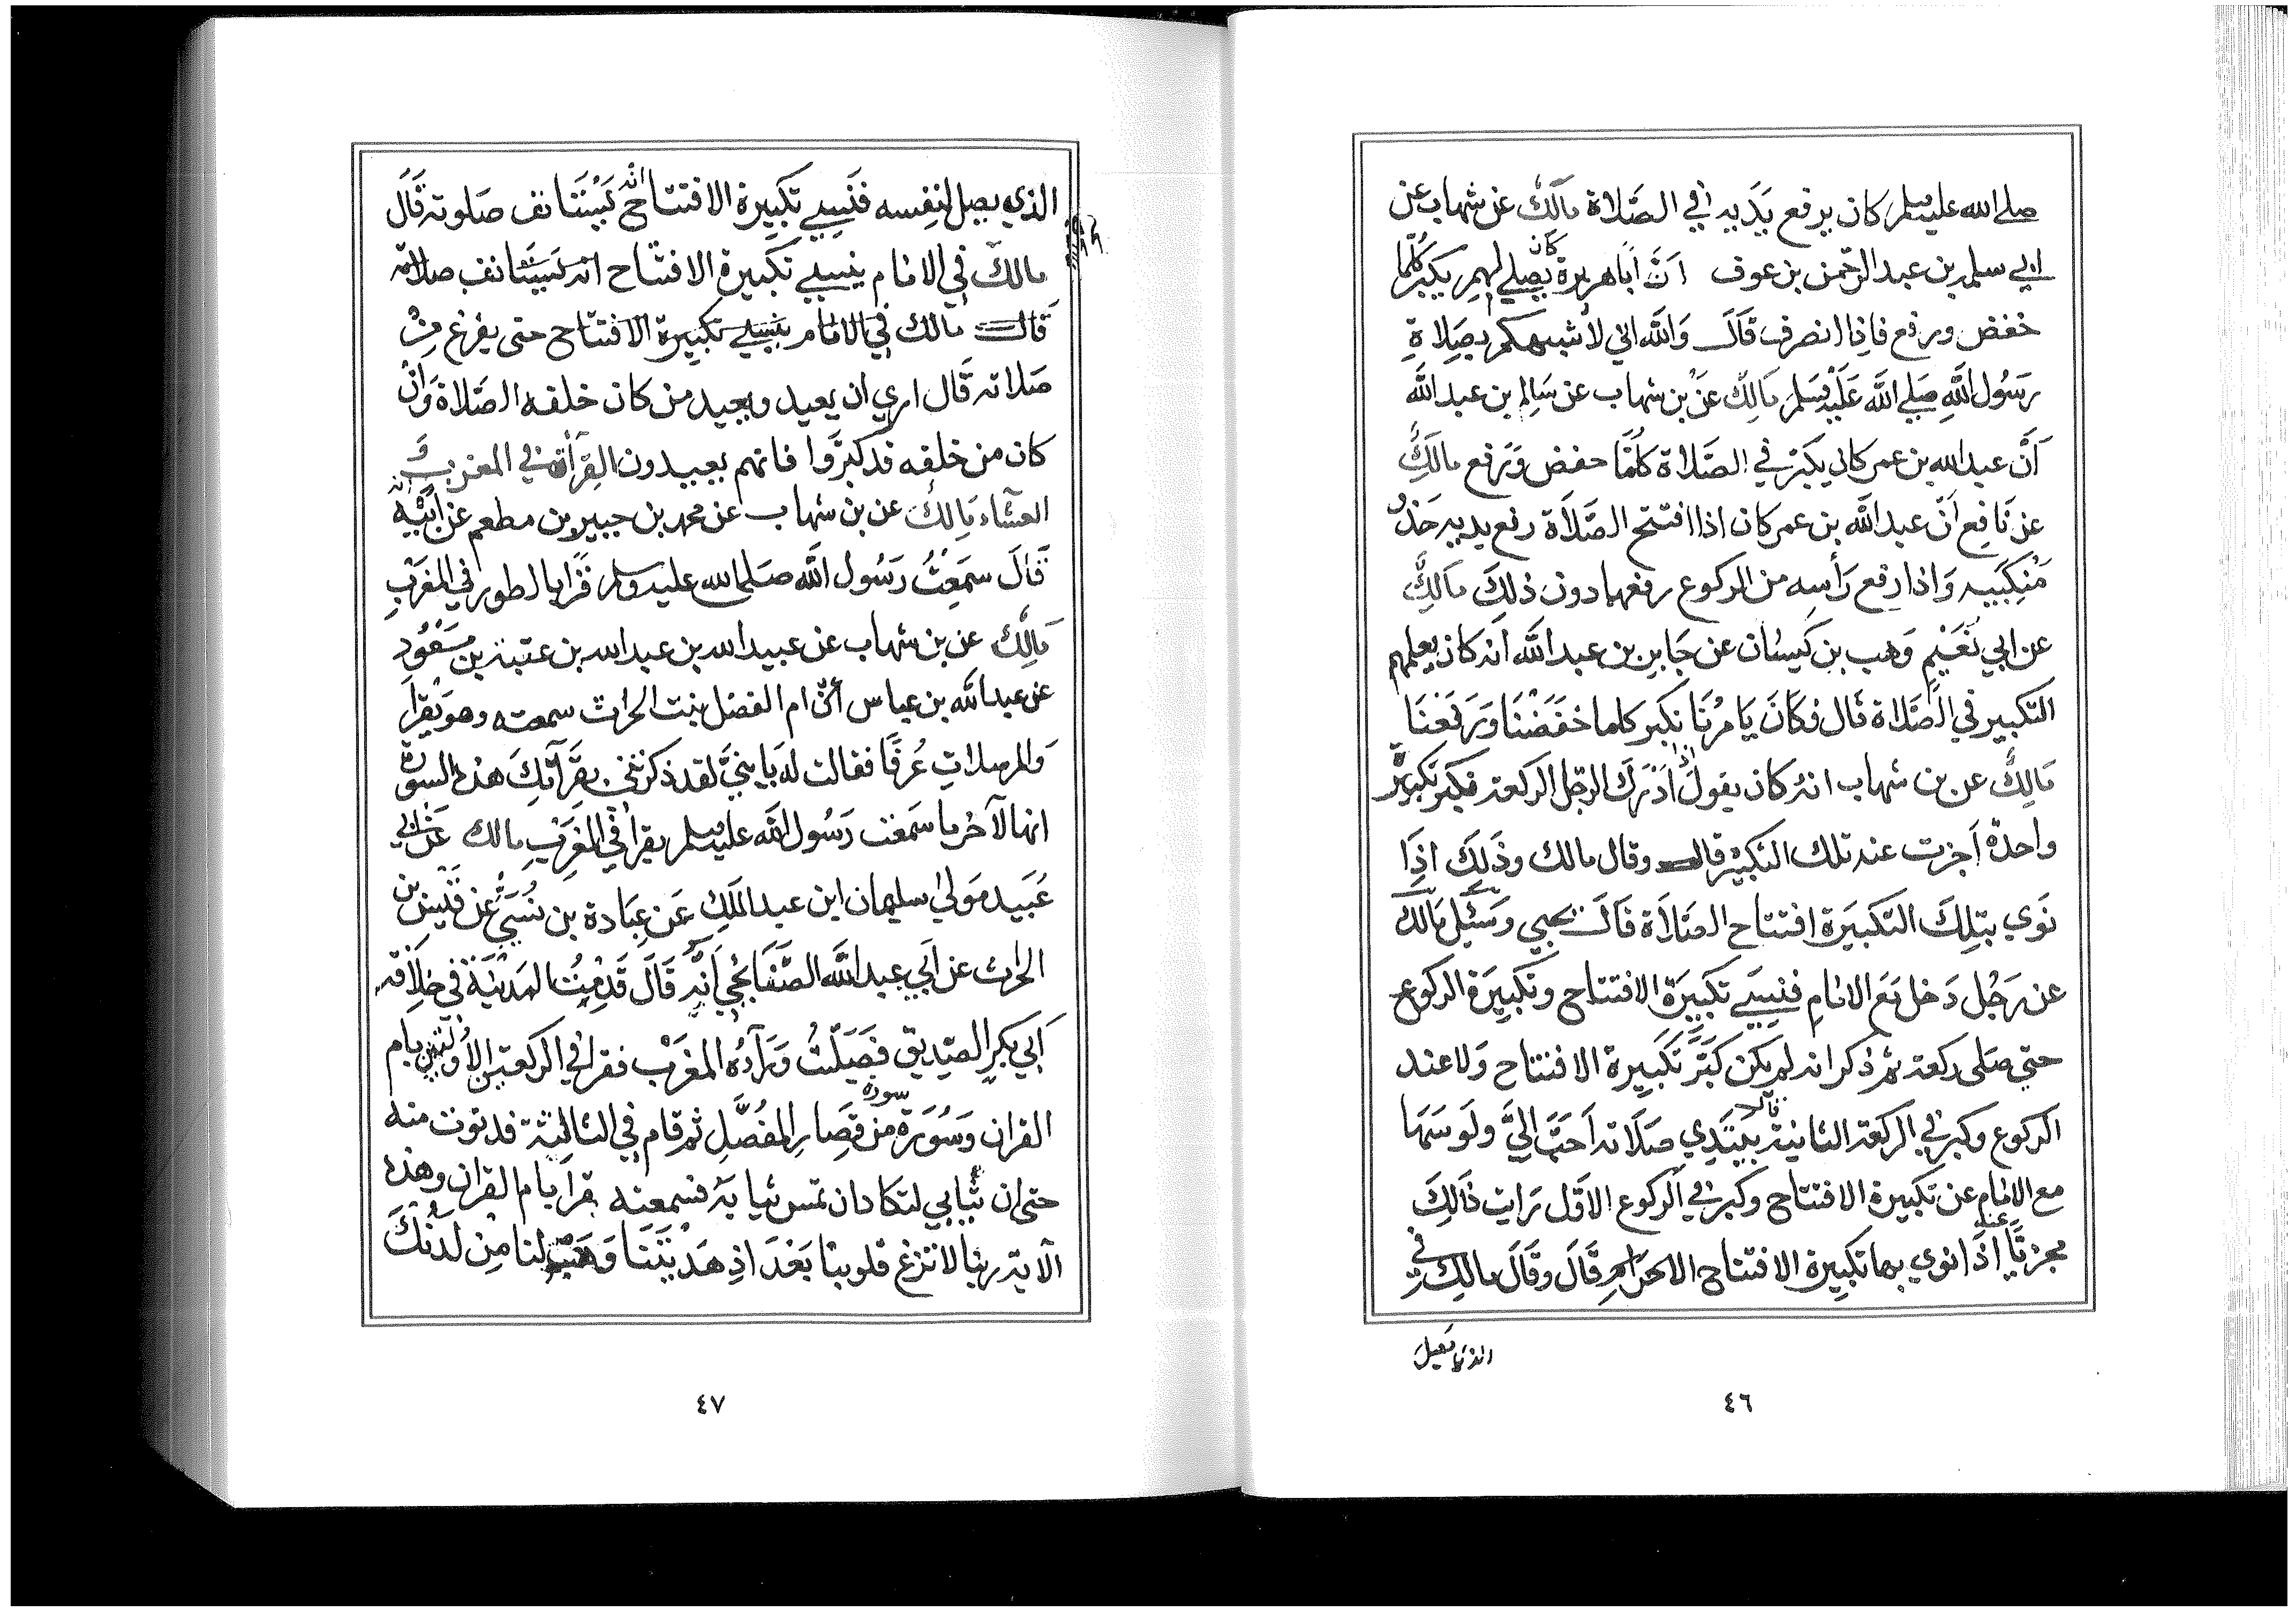 صلي الله عليه وسلم كان يرفع يديه في الصلاة مالك عن شهاب عن
ابي سلمه بن عبد الرحمن بن عوف ان أبا هريرة كان يصلي لهم يكبر كلما
خفض ورفع فاذا انصرف قال والله اني لاشبهكم بصلاة
رسول الله صلي الله عليه وسلم مالك عن بن شهاب عن سالم بن عبد الله
أن عبد الله بن عمر كان يكبر في الصلاة كلما خفض ورفع مالك
عن نافع أن عبد الله بن عمر كان اذا افتتح الصلاة رفع يديه حذو
منكبيه واذا رفع رأسه من الركوع رفعهما دون ذلك مالك
عن ابي نعيم وهب بن كيسان عن جابر بن عبد الله أنه كان يعلمهم
التكبير في الصلاة قال فكان يامرنا نكبر كلما خفضنا ورفعنا
مالك عن بن شهاب انه كان يقول اذا ادرك الرجل الركعة فكبر تكبيرة
واحدة أجزت عنه تلك التكبيرة قال وقال مالك وذلك اذا
نوي بتلك التكبيرة افتتاح الصلاة قال يحيي وسئل مالك
عن رجل دخل مع الامام فنسي تكبيرة الافتتاح وتكبيرة الركوع
حتي صلى ركعة ثم ذكر انه لم يكن كبر تكبيرة الافتتاح ولا عند
الركوع وكبر في الركعة الثانية قال يبتدي صلاته احب الي ولو سها
مع الامام عن تكبيرة الافتتاح وكبر في الركوع الاول رايت ذالك
مجزيا عنه اذا نوي بها تكبيرة الافتتاح الاحرام قال وقال مالك في
الذي
٤٦
الذي يصل لنفسه فنسي تكبيرة الافتتاح انه يستانف صلوته قال
مالك في الامام ينسي تكبيرة الافتتاح انه يستانف صلاته
قال مالك في الامام ينسي تكبيرة الافتتاح حتى يفرغ من
صلاته قال اري ان يعيد ويعيد من كان خلفه الصلاة وان
كان من خلفه قد كبروا فانهم يعيدون القرأة في المغرب و
العشاء مالك عن بن شهاب عن محمد بن جبير بن مطعم عن ابيه انه
قال سمعت رسول الله صلى الله عليه وسلم قرا بالطور في المغرب
مالك عن بن شهاب عن عبيد الله بن عبد الله بن عتبة بن مسعود
عن عبد الله بن عباس أن ام الفضل بنت الحارث سمعته وهو يقرا
والمرسلات عرفا فقالت له يا بني لقد ذكرتني بقرآتك هذه السورة
انها لآخر ما سمعت رسول الله عليه وسلم يقرا في المغرب مالك عن ابي
عبيد مولي سليمان ابن عبد الملك عن عبادة بن نسي عن قيس بن
الحارث عن ابي عبد الله الصنابحي انه قال قدمت المدينة في خلافة
ابي بكر الصديق فصليت ورآءه المغرب فقرا في الركعتين الاوليين بام
القران وسورة سورة من قصار المفصل ثم قام في الثالثة فدنوت منه
حتى ان ثيابي لتكاد ان تمس ثيابه فسمعته قرا بام القران وهذه
الآية ربنا لا تزغ قلوبنا بعد اذ هديتنا وهب لنا من لدنك
٤٧